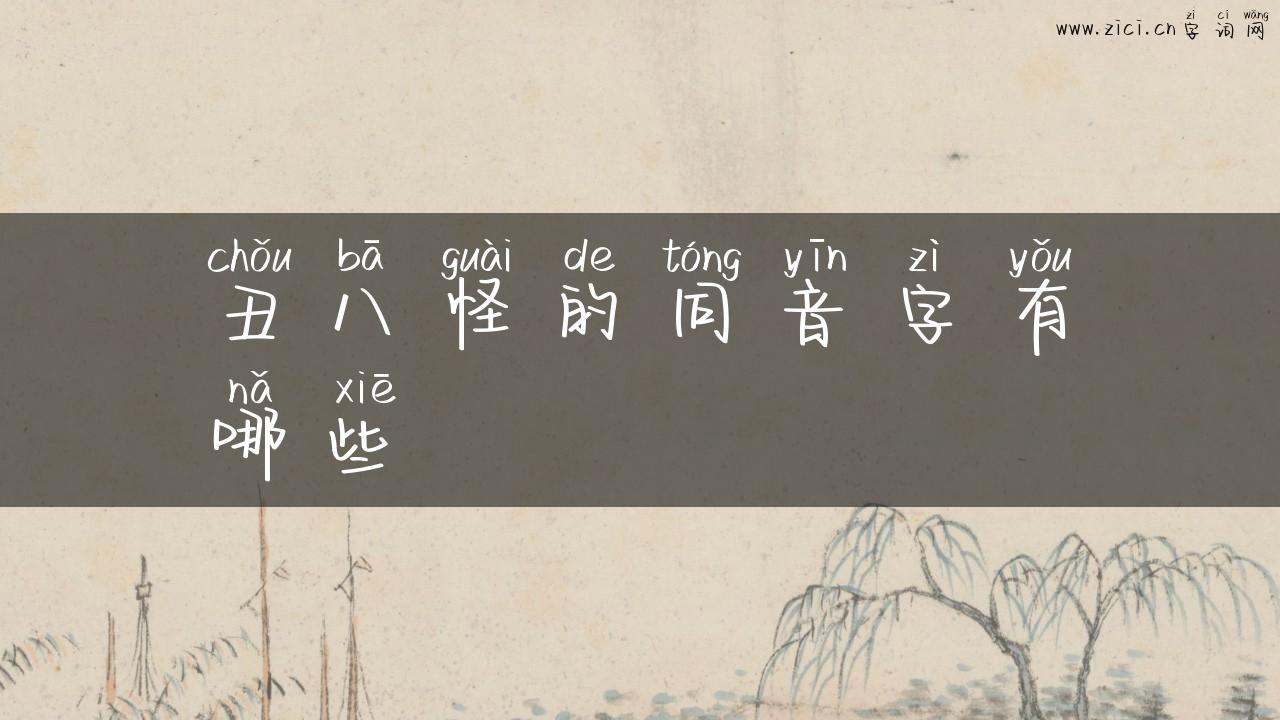 zì cí wǎng
www.zici.cn 字词网
chǒu bā guài de tóng yīn zì yǒu
丑八怪的同音字有
nǎ xiē
哪些